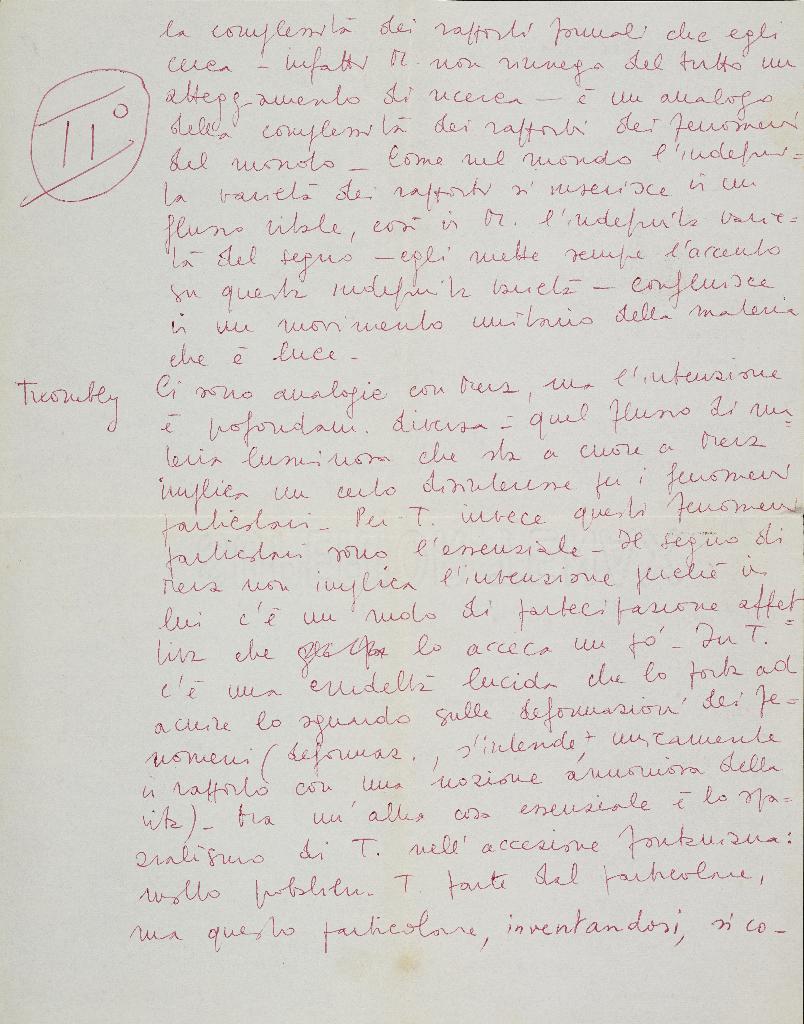 la complessità dei rapporti formali che egli
cerca – infatti M. non rinnega del tutto un
atteggiamento di ricerca – è un analogo
II°
della complessità dei rapporti dei fenomeni
del mondo – Come nel mondo l'indefini=
ta varietà dei rapporti si inserisce in un
flusso vitale, così in M. l'indefinita varie-
tà del segno – egli mette sempre l'accento
su questa indefinita varietà – confluisce
in un movimento unitario della materia
che è luce –
Twombly
Ci sono analogie con Merz, ma l'intenzione
è profondam. diversa = quel flusso di ma-
teria luminosa che sta a cuore a Merz
implica un certo disinteresse per i fenomeni
particolari – Per T. invece questi fenomeni
particolari sono l'essenziale – Il segno di
Merz non implica l'intenzione perché in
lui c'è un modo di partecipazione affet=
tiva che lo acceca un pó – In T.
c'è una crudeltà lucida che lo porta ad
acuire lo sguardo sulle deformazioni dei fe-
nomeni (deformaz., s'intende, unicamente
in rapporto con una nozione armoniosa della
vita) – Ma un'altra cosa essenziale è lo spa-
zialismo di T. nell'accezione fontaniana:
molto T. parte dal particolare,
ma questo particolare, inventandosi, si co-